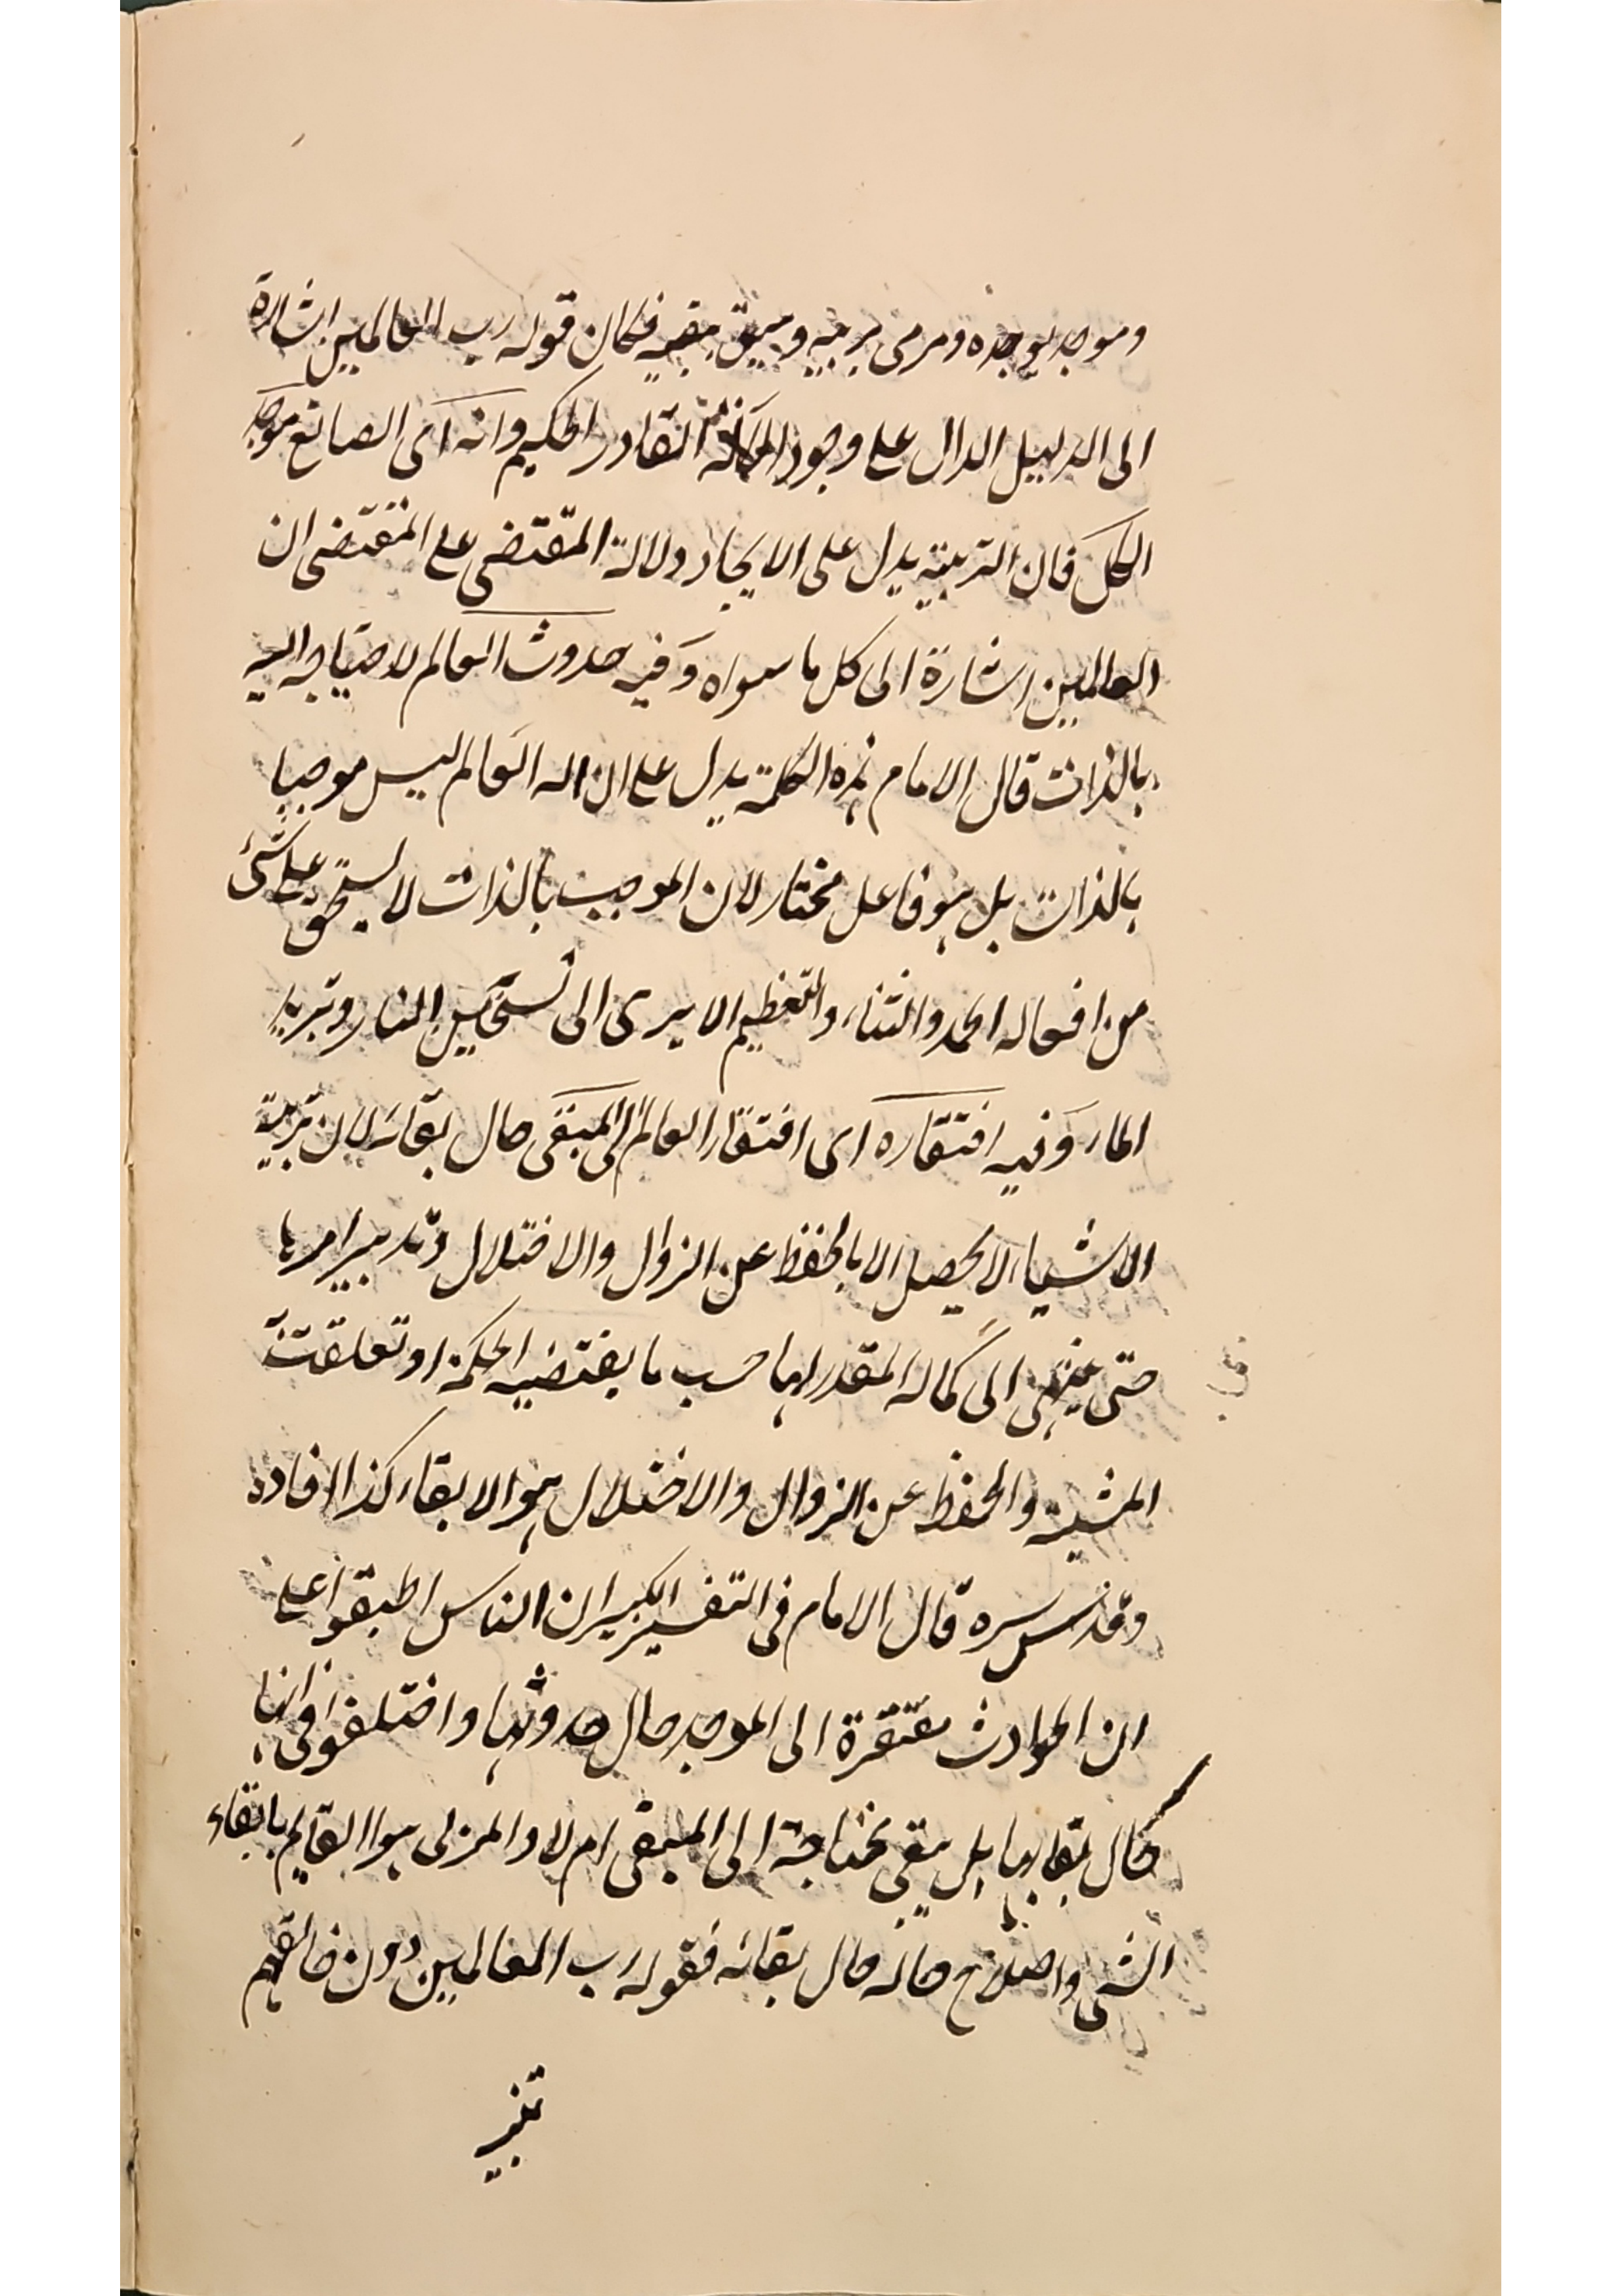 وموجد يوجده ومربى يربيه ومبق يبقيه فكان قوله رب العالمين اشارة
الى الدليل الدال على وجود الاله القادر الحكيم وانه اى الصانع موجد
الكل فان التربية يدل على الايجاد دلالة المقتضى على المقتضى ان
العالمين اشارة الى كل ما سواه وفيه حدوث العالم لاحتياجه اليه
بالذات قال الامام هذه الكلمة يدل على ان اله العالم ليس موجبا
بالذات بل هو فاعل مختار لان الموجب بالذات لا يستحق على شئ
من افعاله الحمد والثناء والتعظيم الا يرى الى تسخين النار وتبريد
الماء وفيه افتقاره اى افتقار العالم الى المبقى حال بقائه لان تربية
الاشياء لا يحصل الا بالحفظ عن الزوال والاختلال وتدبير امرها
حتى ينتهى الى كماله المقدر لها حسب ما يقتضيه الحكمة او تعلقت
المشية والحفظ عن الزوال والاختلال هو الابقاء كذا افاده
وقدس سره قال الامام فى التفسير الكبير ان الناس اطبقوا على
ان الحوادث مفتقرة الى الموجد حال حدوثها واختلفوا فى انها
حال بقايها بل يبقى محتاجة الى المبقى ام لا والمربى هو القايم بابقاء
الشى واصلاح حاله حال بقائه فقوله رب العالمين دون خالقهم
تنبيه